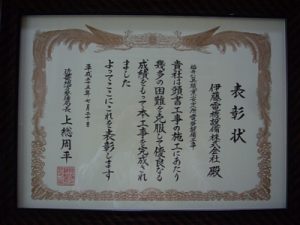 表彰状
伊藤電機設備株式会社 殿
貴社は頭書工事の施工にあたり
幾多の困難を克服して優良なる
成績をもって本工事を完成され
ました
よってここにこれを表彰します
平成十五年七月二十日
上総周平